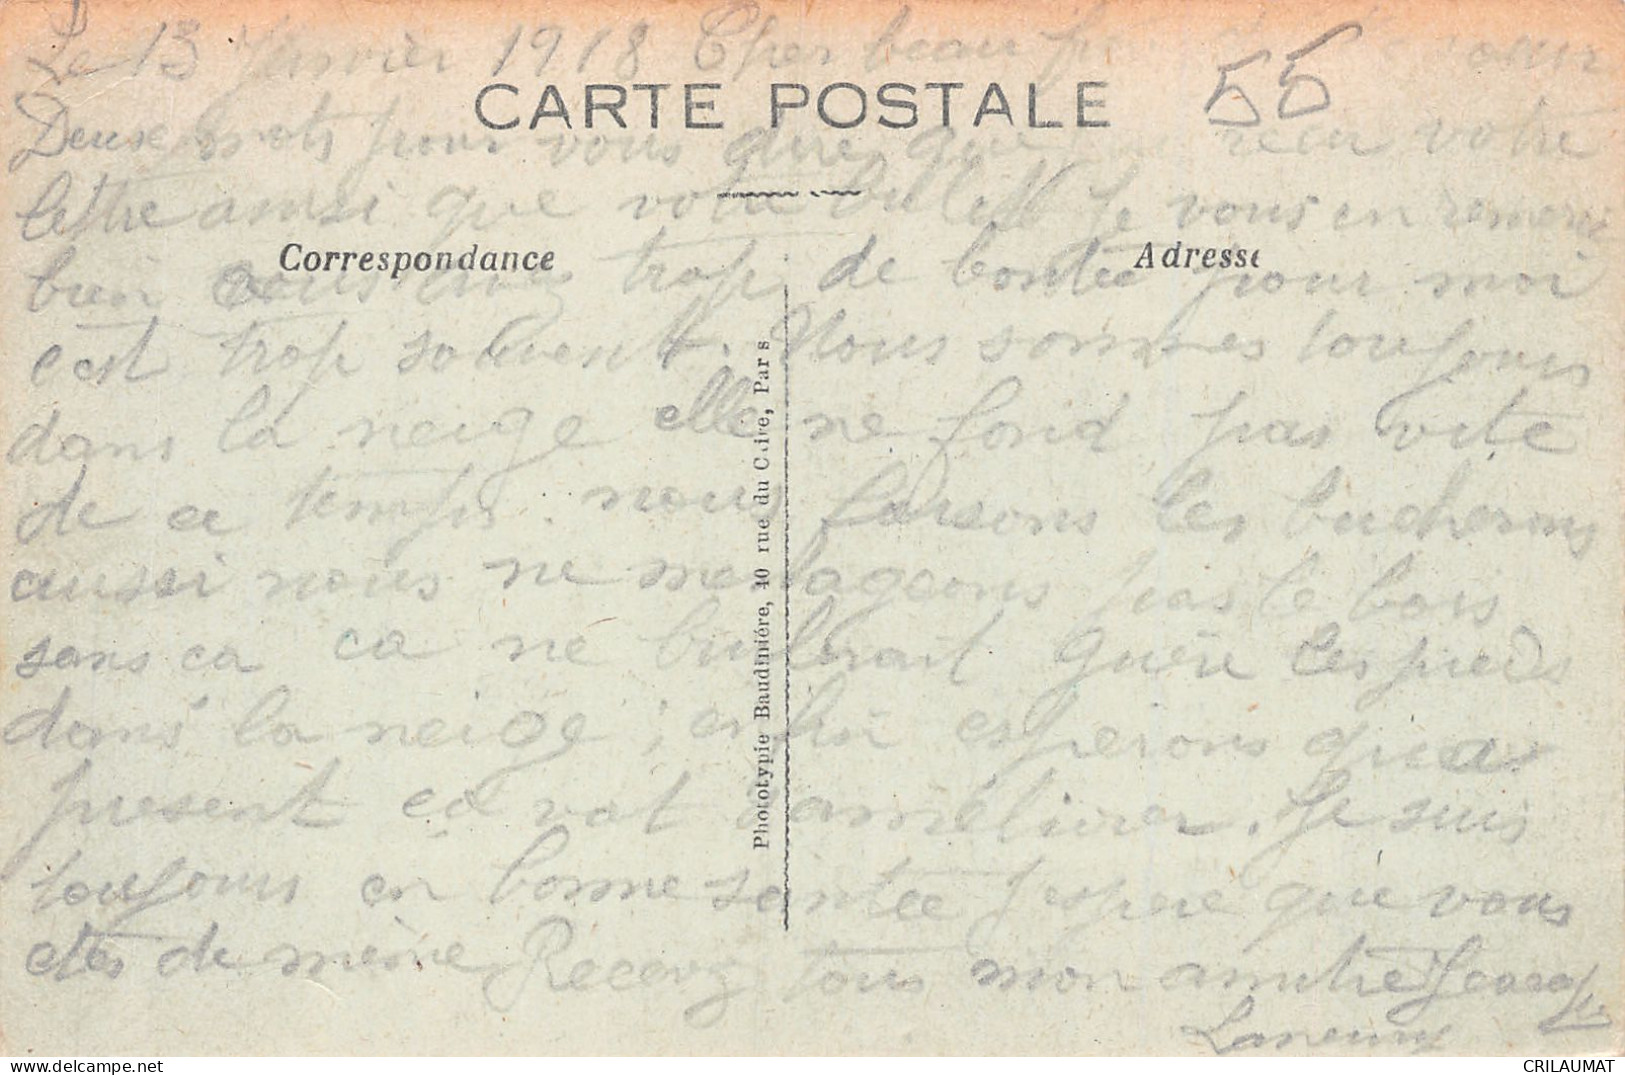 Le 13 Janvier 1918 Cher beau soeur
55
CARTE POSTALE
Deux mots pour vous dire que recu votre
lettre ainsi que votre billet Je vous en remerci
Correspondance
Adresse
bien vous avez trop de bontée pour moi
c'est trop souvent. Nous sommes toujours
dans la neige elle ne fond pas vite
de ce temps. nous faisons les bucherons
aussi nous ne menageons pas le bois
sans ca ca ne brulerait guère les pieds
dans la neige ; enfin esperons qua
present ca vat saméliorer. Je suis
toujours en bonne santée jespere que vous
etes de même Recevez tous mon amitié
Phototypie Baudinière, 40 rue du Caire, Paris
CRILAUMAT